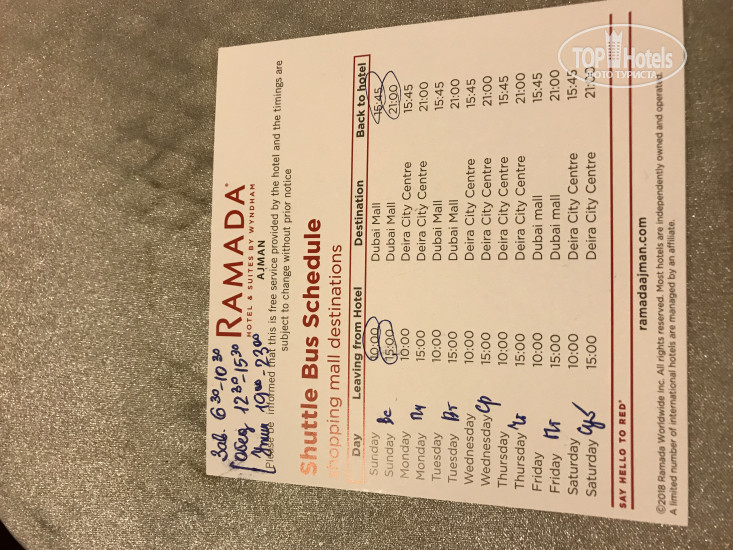 Зав. 6³⁰-10³⁰
обед 12³⁰-15³⁰
Ужин 19⁰⁰-23⁰⁰
RAMADA®
HOTEL & SUITES BY WYNDHAM
AJMAN
Please be informed that this is free service provided by the hotel and the timings are
subject to change without prior notice
Shuttle Bus Schedule
shopping mall destinations
Day Leaving from Hotel Destination Back to hotel
Sunday 10:00 Dubai Mall 15:45
Sunday Вс 15:00 Dubai Mall 21:00
Monday 10:00 Deira City Centre 15:45
Monday Пн 15:00 Deira City Centre 21:00
Tuesday 10:00 Dubai Mall 15:45
Tuesday Вт 15:00 Dubai Mall 21:00
Wednesday 10:00 Deira City Centre 15:45
Wednesday Ср 15:00 Deira City Centre 21:00
Thursday 10:00 Deira City Centre 15:45
Thursday Чт 15:00 Deira City Centre 21:00
Friday 10:00 Dubai mall 15:45
Friday Пт 15:00 Dubai mall 21:00
Saturday 10:00 Deira City Centre 15:45
Saturday Суб 15:00 Deira City Centre 21:00
SAY HELLO TO RED®
ramadaajman.com
©2018 Ramada Worldwide Inc. All rights reserved. Most hotels are independently owned and operated.
A limited number of international hotels are managed by an affiliate.
TOP Hotels
ФОТО ТУРИСТА